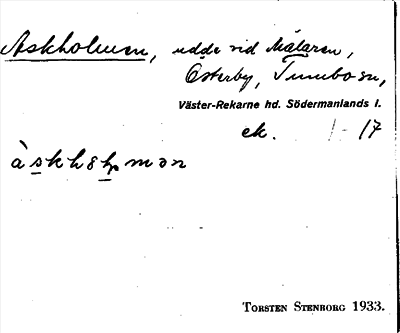 Askholmen, udde vid Mälaren,
Österby, Tumbo sn,
Väster-Rekarne hd. Södermanlands l.
ek. 1-17
àskhoḷmən
TORSTEN STENBORG 1933.